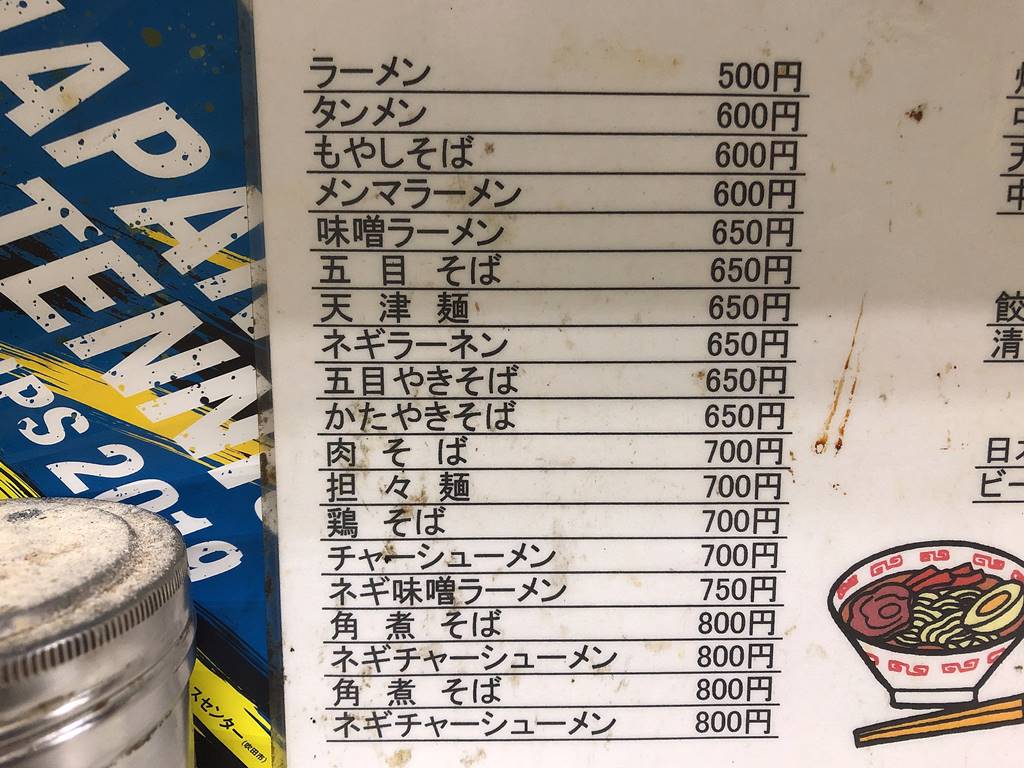 JAPAN
TENNIS
PS 2019
スセンター(吹田市)
ラーメン 500円
タンメン 600円
もやしそば 600円
メンマラーメン 600円
味噌ラーメン 650円
五 目 そば 650円
天 津 麺 650円
ネギラーネン 650円
五目やきそば 650円
かたやきそば 650円
肉 そ ば 700円
担 々 麺 700円
鶏 そば 700円
チャーシューメン 700円
ネギ味噌ラーメン 750円
角 煮 そば 800円
ネギチャーシューメン 800円
角 煮 そば 800円
ネギチャーシューメン 800円
中
天
中
餃
清
日
ビー